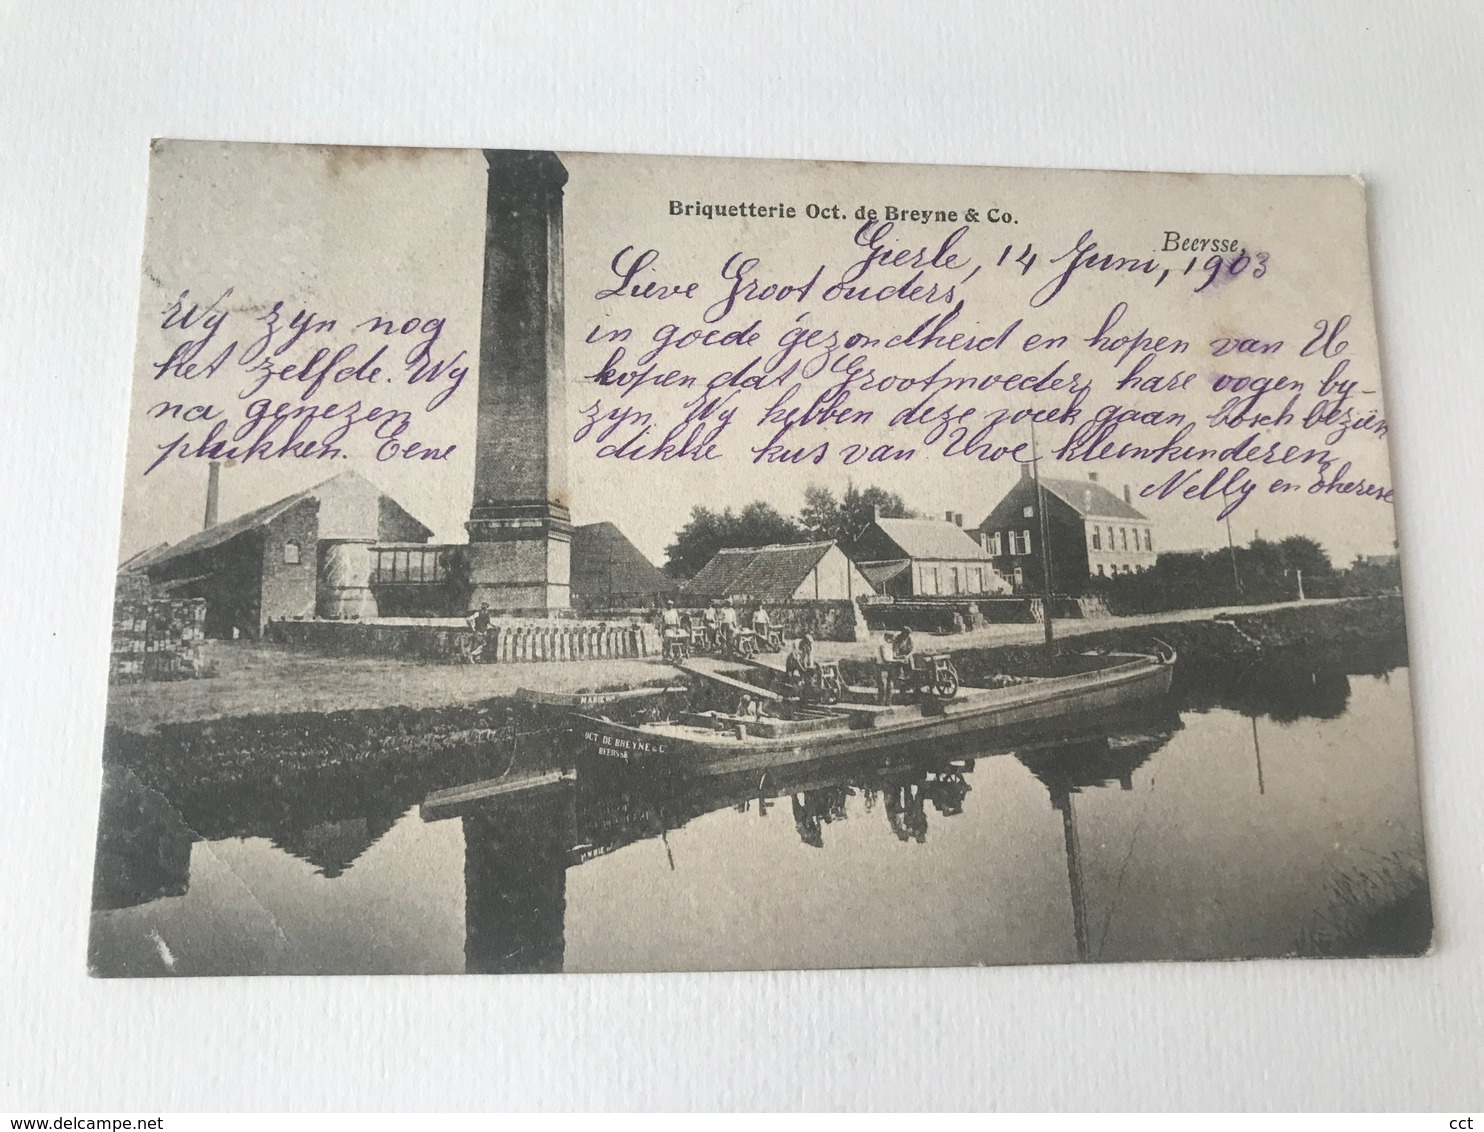 Briquetterie Oct. de Breyne & Co.
Beersse.
Gierle, 14 Juni, 1903
Lieve Groot ouders,
Wy zyn nog in goede gezondheid en hopen van U
het zelfde. Wy hopen dat Grootmoeder, hare oogen by-
na genezen zyn. Wy hebben deze week gaan bosch beziën
plukken. Eene dikke kus van Uwe kleinkinderen
Nelly en Therese
MARIE
OCT DE BREYNE & C°
BEERSSE
delcampe.net
cct